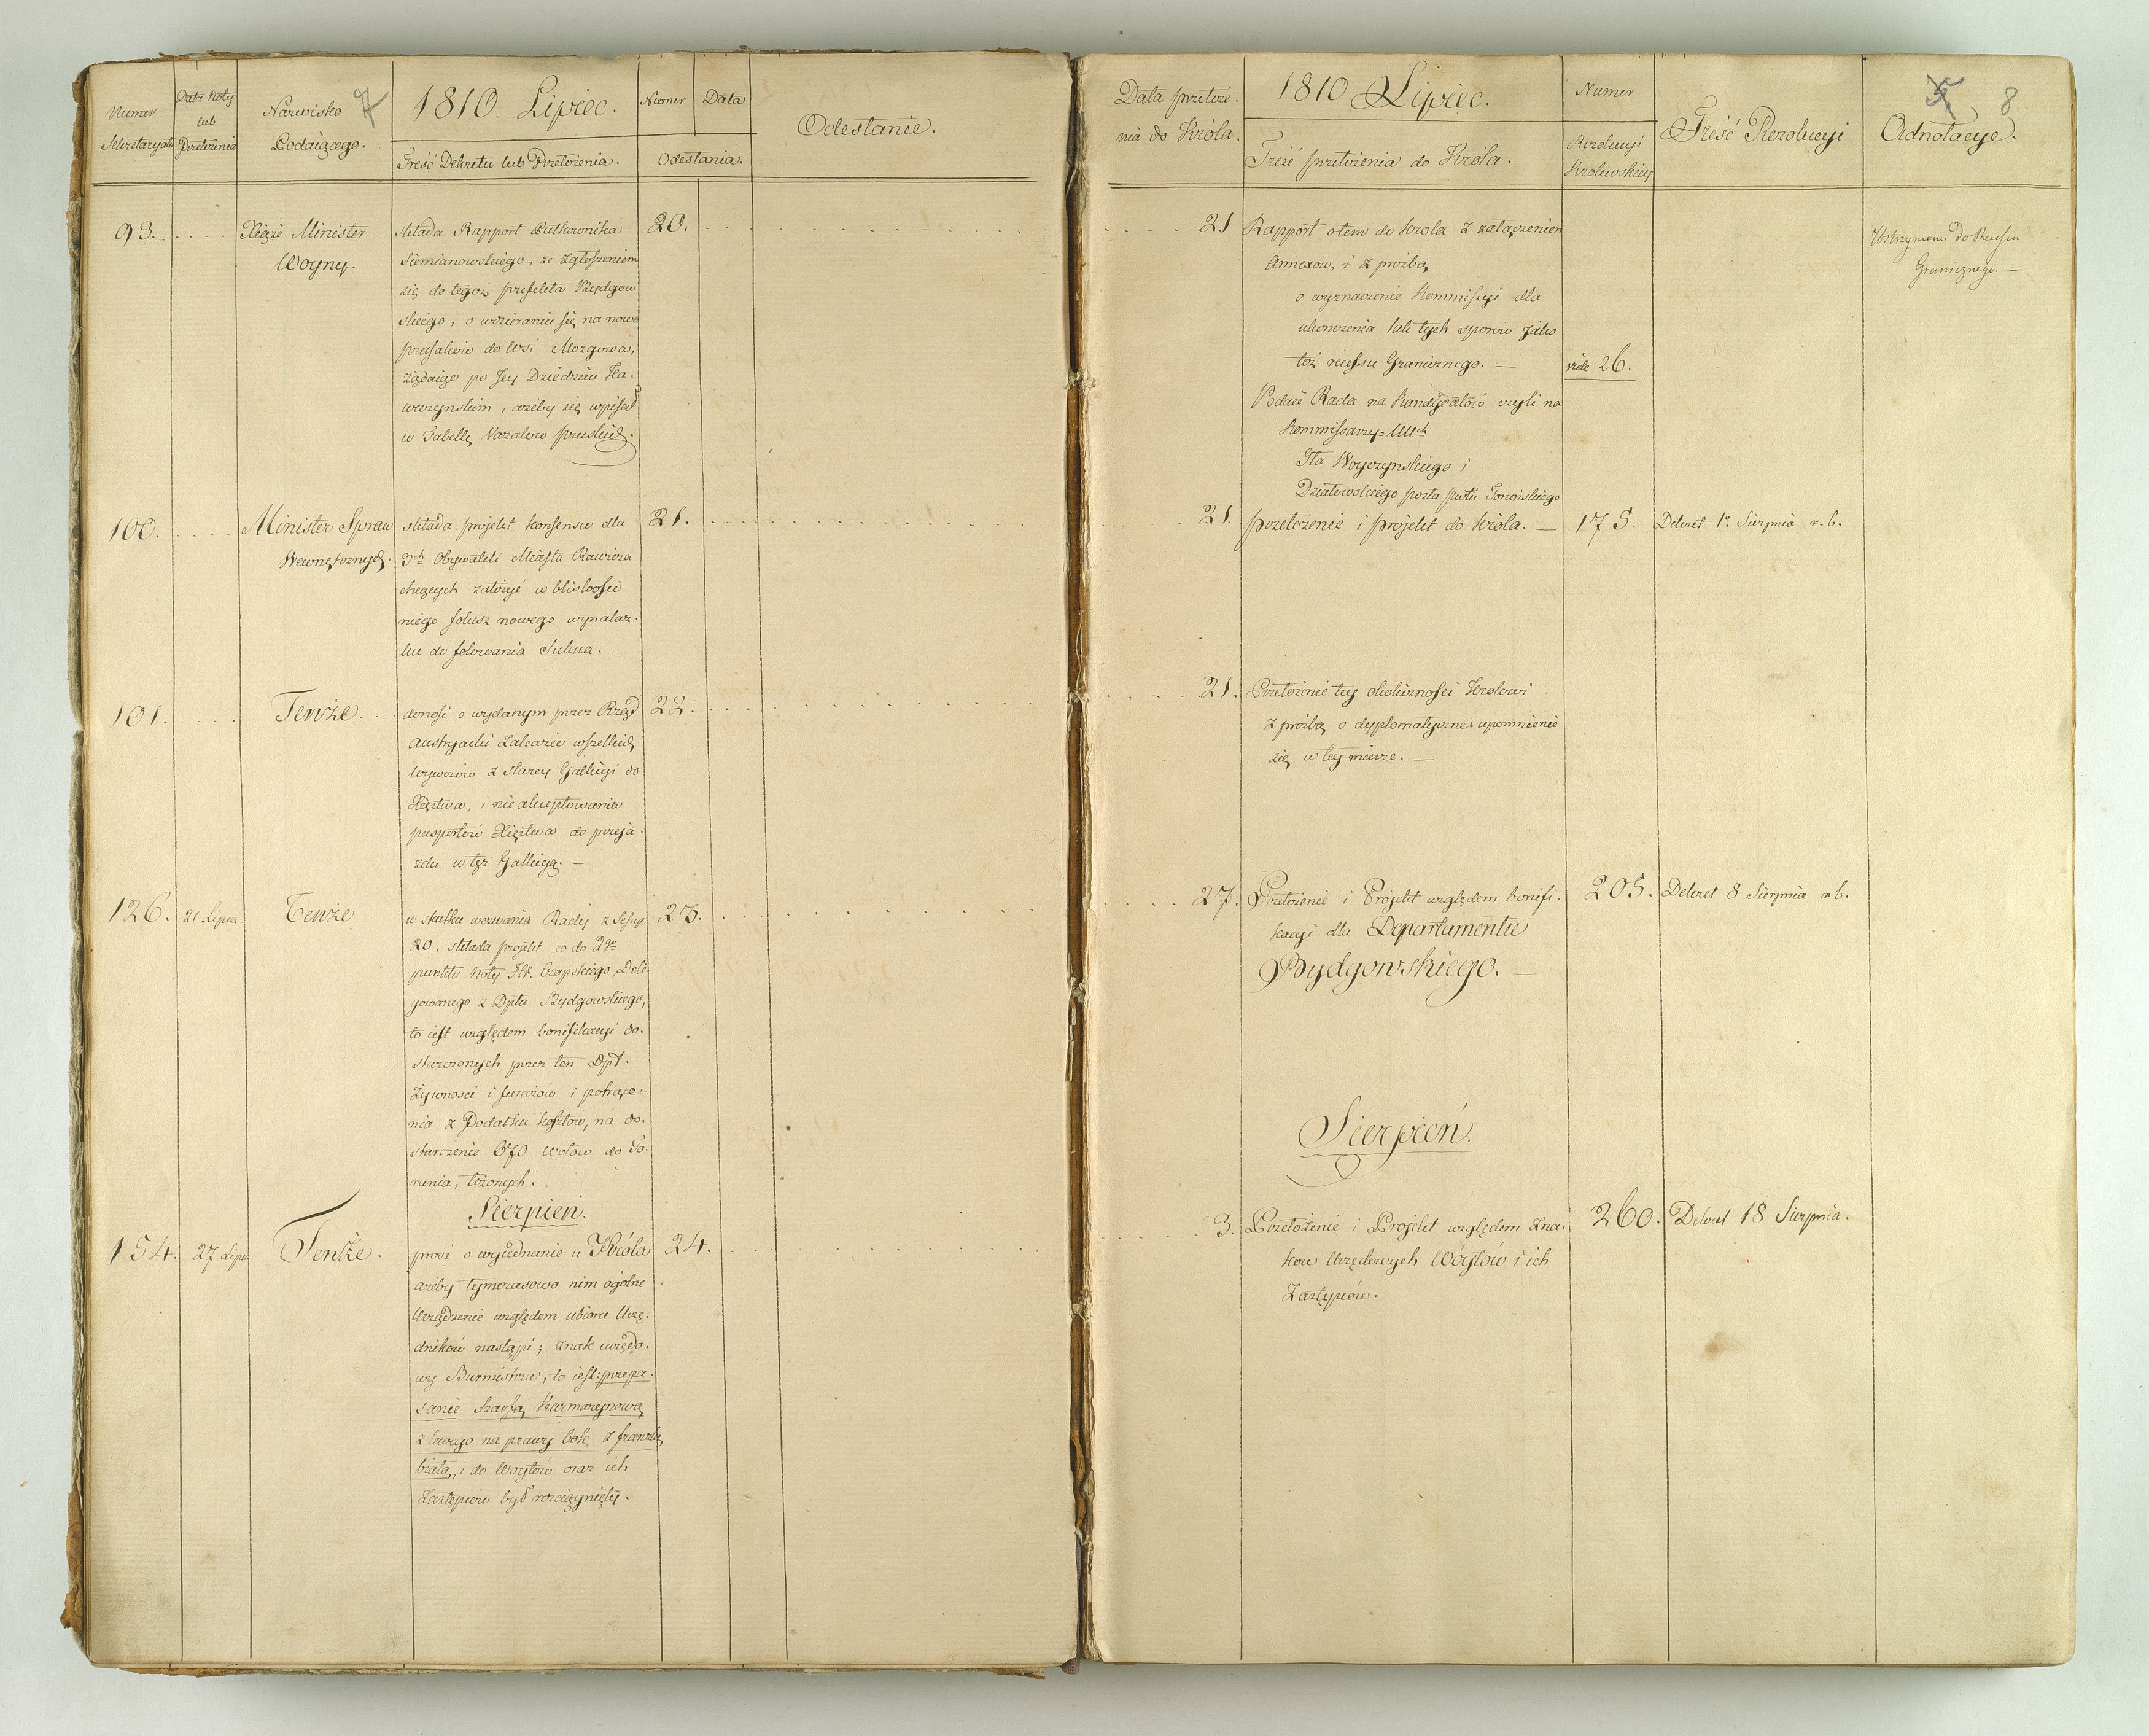 Numer
Sekretaryatu
Data Noty
lub
Przełożenia
Nazwisko
Podaiącego.
7
1810. Lipiec.
Treść Dekretu lub Przełożenia.
Numer
Data
Odesłania.
Odesłanie.
93.
Xiąże Minister
Woyny.
składa Rapport Pułkownika
Siemianowskiego, ze zgłoszeniem
się do tegoż prefekta Bydgow
skiego, o wdzieraniu się na nowo
prusaków do wsi Mozgowa,
żądaiąc po Jey Dziedzicu Ka.
wczynskim, ażeby się wpisał
w Tabellę Vazalow pruskich.
20.
100.
Minister Spraw
Wewnętrznych.
składa projekt konsensu dla
3ch Obywateli Miasta Rawicza
chcących założyć w bliskości
niego folusz nowego wynalaz-
ku do folowania Sukna.
21.
101.
Tenże.
donosi o wydanym przez Rząd
Austryacki zakazie wszelkich
wywozów z starey Gallicyi do
Xięztwa, i nie akceptowania
paszportów Xięztwa do przeja-
zdu w tęż Gallicyą. —
22.
126.
21 Lipca
Tenże
w skutku wezwania Rady z Sessyi
20, składa projekt co do 2go
punktu Noty JW. Czapskiego, Dele
gowanego z Dptu Bydgowskiego,
to iest względem bonifikacyi do.
starczonych przez ten Dpt.
żywności i furażów i potrące-
nia z Podatku kosztow, na do.
starczenie 670 wołow do To.
runia, łożonych.
23.
Sierpień.
154.
27 Lipca
Tenże.
prosi o wyiednanie u Króla
ażeby tymczasowo nim ogólne
Urządzenie względem ubioru Urzę.
dników nastąpi; znak urzędo.
wy Burmistrza, to iest: przepa.
sanie szarfą karmazynową
z lewego na prawy bok z franzlą
białą, i do Woytów oraz ich
Zastępców był rozciągnięty.
24.
Data przełoże.
nia do Króla.
1810 Lipiec.
Treść przełożenia do Króla.
Numer
Rezolucyi
Krolewskiey
Treść Rezolucyi
8
Adnotacye.
21
Rapport otem do krola z załączeniem
Annexow, i z prozbą
o wyznaczenie Kommissyi dla
ukończenia tak tych sporow jako
też recessu Granicznego. —
vide 26.
Podaie Rada na Kandydatów czyli na
Kommissarzy = UUch
Gła Woyczynskiego i
Działowskiego posła pwtu Toruńskiego
Wstrzymane do Recessu
Granicznego. —
21.
przełożenie i projekt do króla. —
175.
Dekret 1o Sierpnia r. b.
21.
Przełożenie tey okoliczności Krolowi
z prozbą o dyplomatyczne upomnienie
się w tey mierze. —
27.
Przełożenie i Projekt względem bonifi.
kacyi dla Departamentu
Bydgowskiego. —
205.
Dekret 8 Sierpnia r. b.
Sierpień.
3.
Przełożenie i Projekt względem zna.
kow Urzędowych Wóytów i ich
Zastępców.
260.
Dekret 18 Sierpnia.